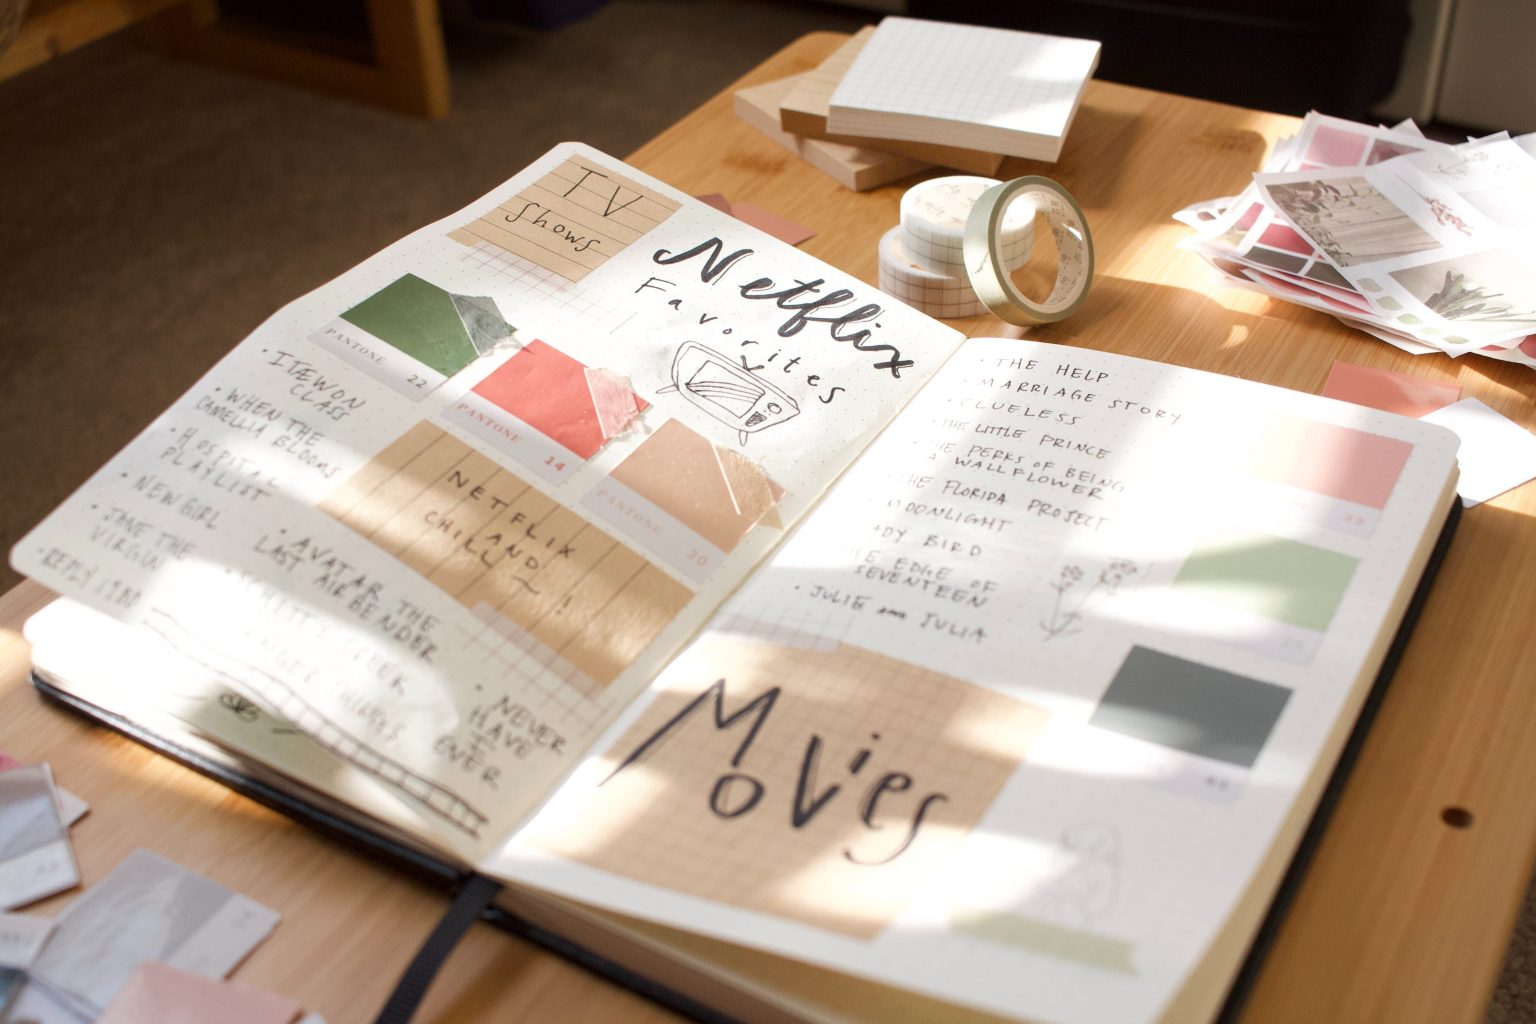 TV
Shows
Netflix
Favorites
PANTONE
22
PANTONE
14
PANTONE
30
• ITÆWON
CLASS
• WHEN THE
CAMELLIA BLOOMS
• HOSPITAL
PLAYLIST
• NEW GIRL
• JANE THE
VIRGIN
• REPLY 1988
NETFLIX
AND
CHILL~!
• AVATAR THE
LAST AIRBENDER
SCHITT'S CREEK
THINGS
• NEVER
HAVE
I
EVER
• THE HELP
• MARRIAGE STORY
• CLUELESS
• THE LITTLE PRINCE
• THE PERKS OF BEING
A WALLFLOWER
THE FLORIDA PROJECT
MOONLIGHT
DY BIRD
HE EDGE OF
SEVENTEEN
• JULIE AND JULIA
39
Movies